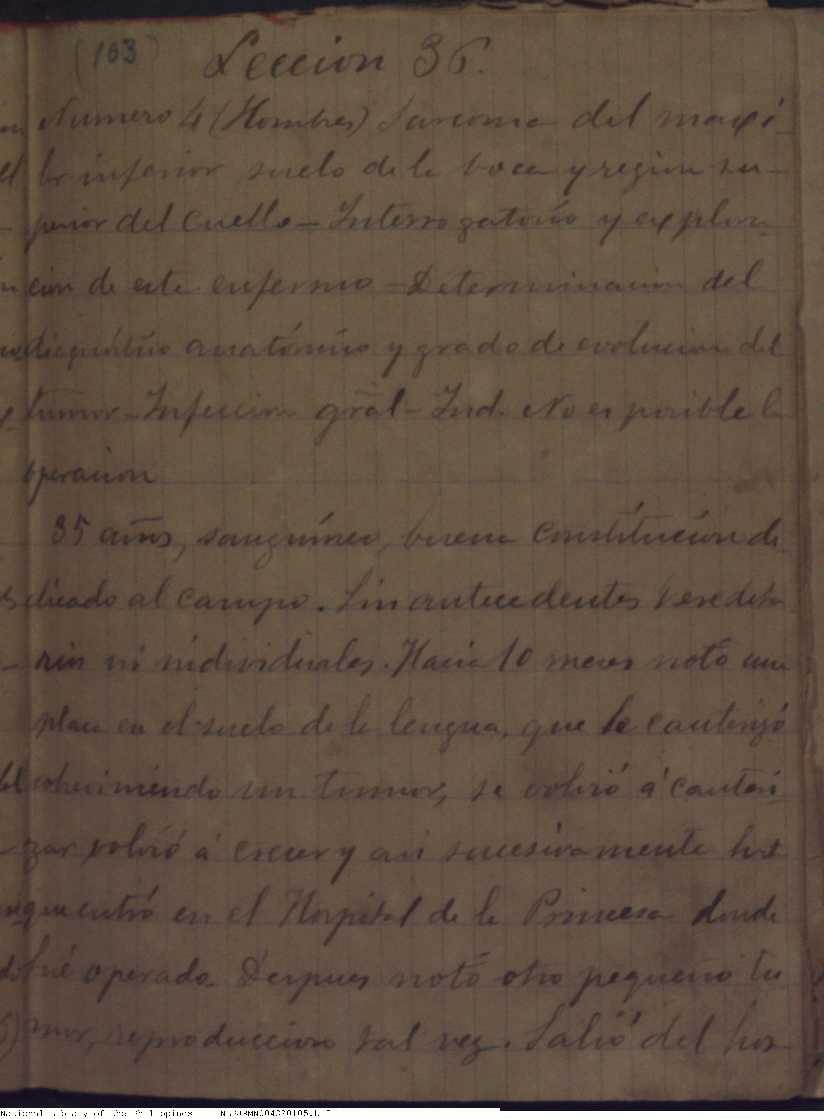 (103) Leccion 36.
Numero 4 (Hombres) Sarcoma del maxi-
lar inferior suelo de la boca y region su-
perior del cuello - Interrogatorio y explora-
cion de este enfermo - Determinacion del
diagnóstico anatómico y grado de evolucion del
tumor - Infeccion gral - Ind. No es posible la
operacion
35 años, sanguíneo, buena constitución de
dicado al campo. Sin antecedentes heredita
rios ni individuales. Hacia 10 meses notó una
placa en el suelo de la lengua, que le cauterizó
sobreviniendo un tumor, se volvió á cauteri-
zar volvió á crecer y asi sucesivamente hast
que entró en el Hospital de la Princesa donde
fué operado. Despues notó otro pequeño tu
mor, reproduccion tal vez. Salió del hos
National Library of the Philippines